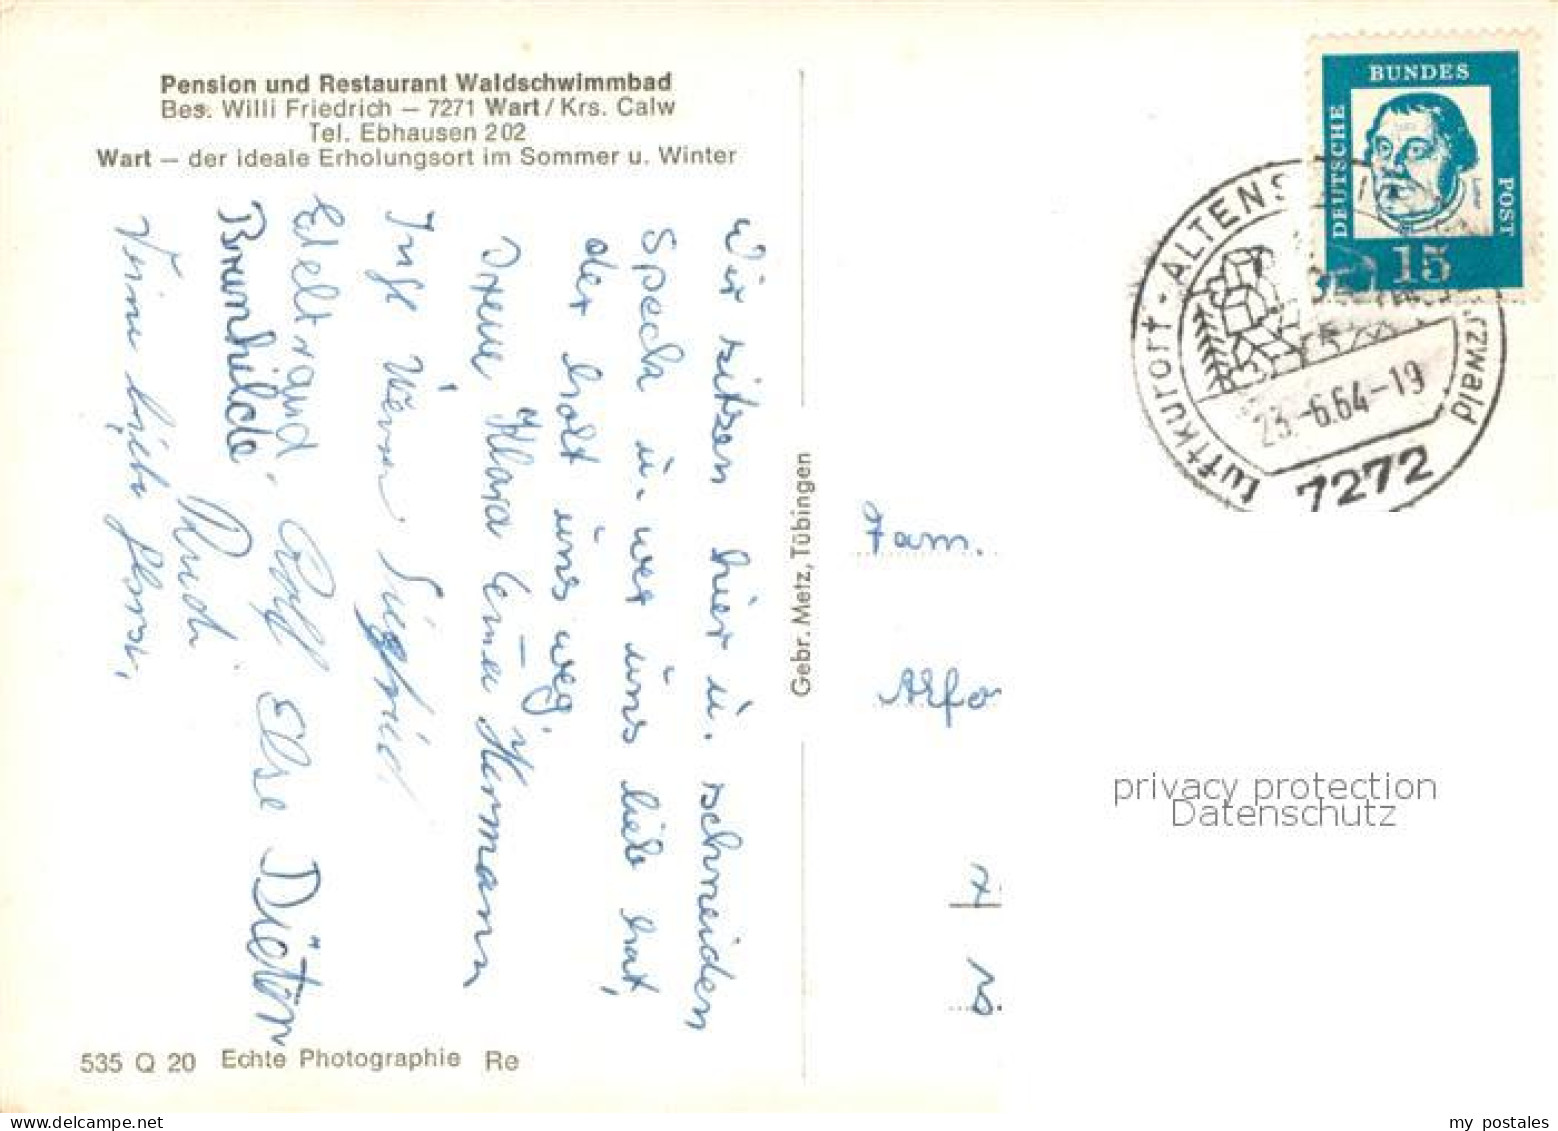 Pension und Restaurant Waldschwimmbad
Bes. Willi Friedrich — 7271 Wart / Krs. Calw
Tel. Ebhausen 202
Wart — der ideale Erholungsort im Sommer u. Winter
Wir sitzen hier u. schneiden
Speck u. wer uns lieb hat,
der holt uns weg.
Irene Klara Hermann
Inge Werner Siegfried
Edeltraud, Rolf Else Dieter
Brunhilde Rudi
Gebr. Metz, Tübingen
Fam.
Alfo
535 Q 20 Echte Photographie Re
DEUTSCHE
BUNDES
POST
15
Luftkurort · ALTENS
rzwald
23.-6.64-19
7272
privacy protection
Datenschutz
my postales